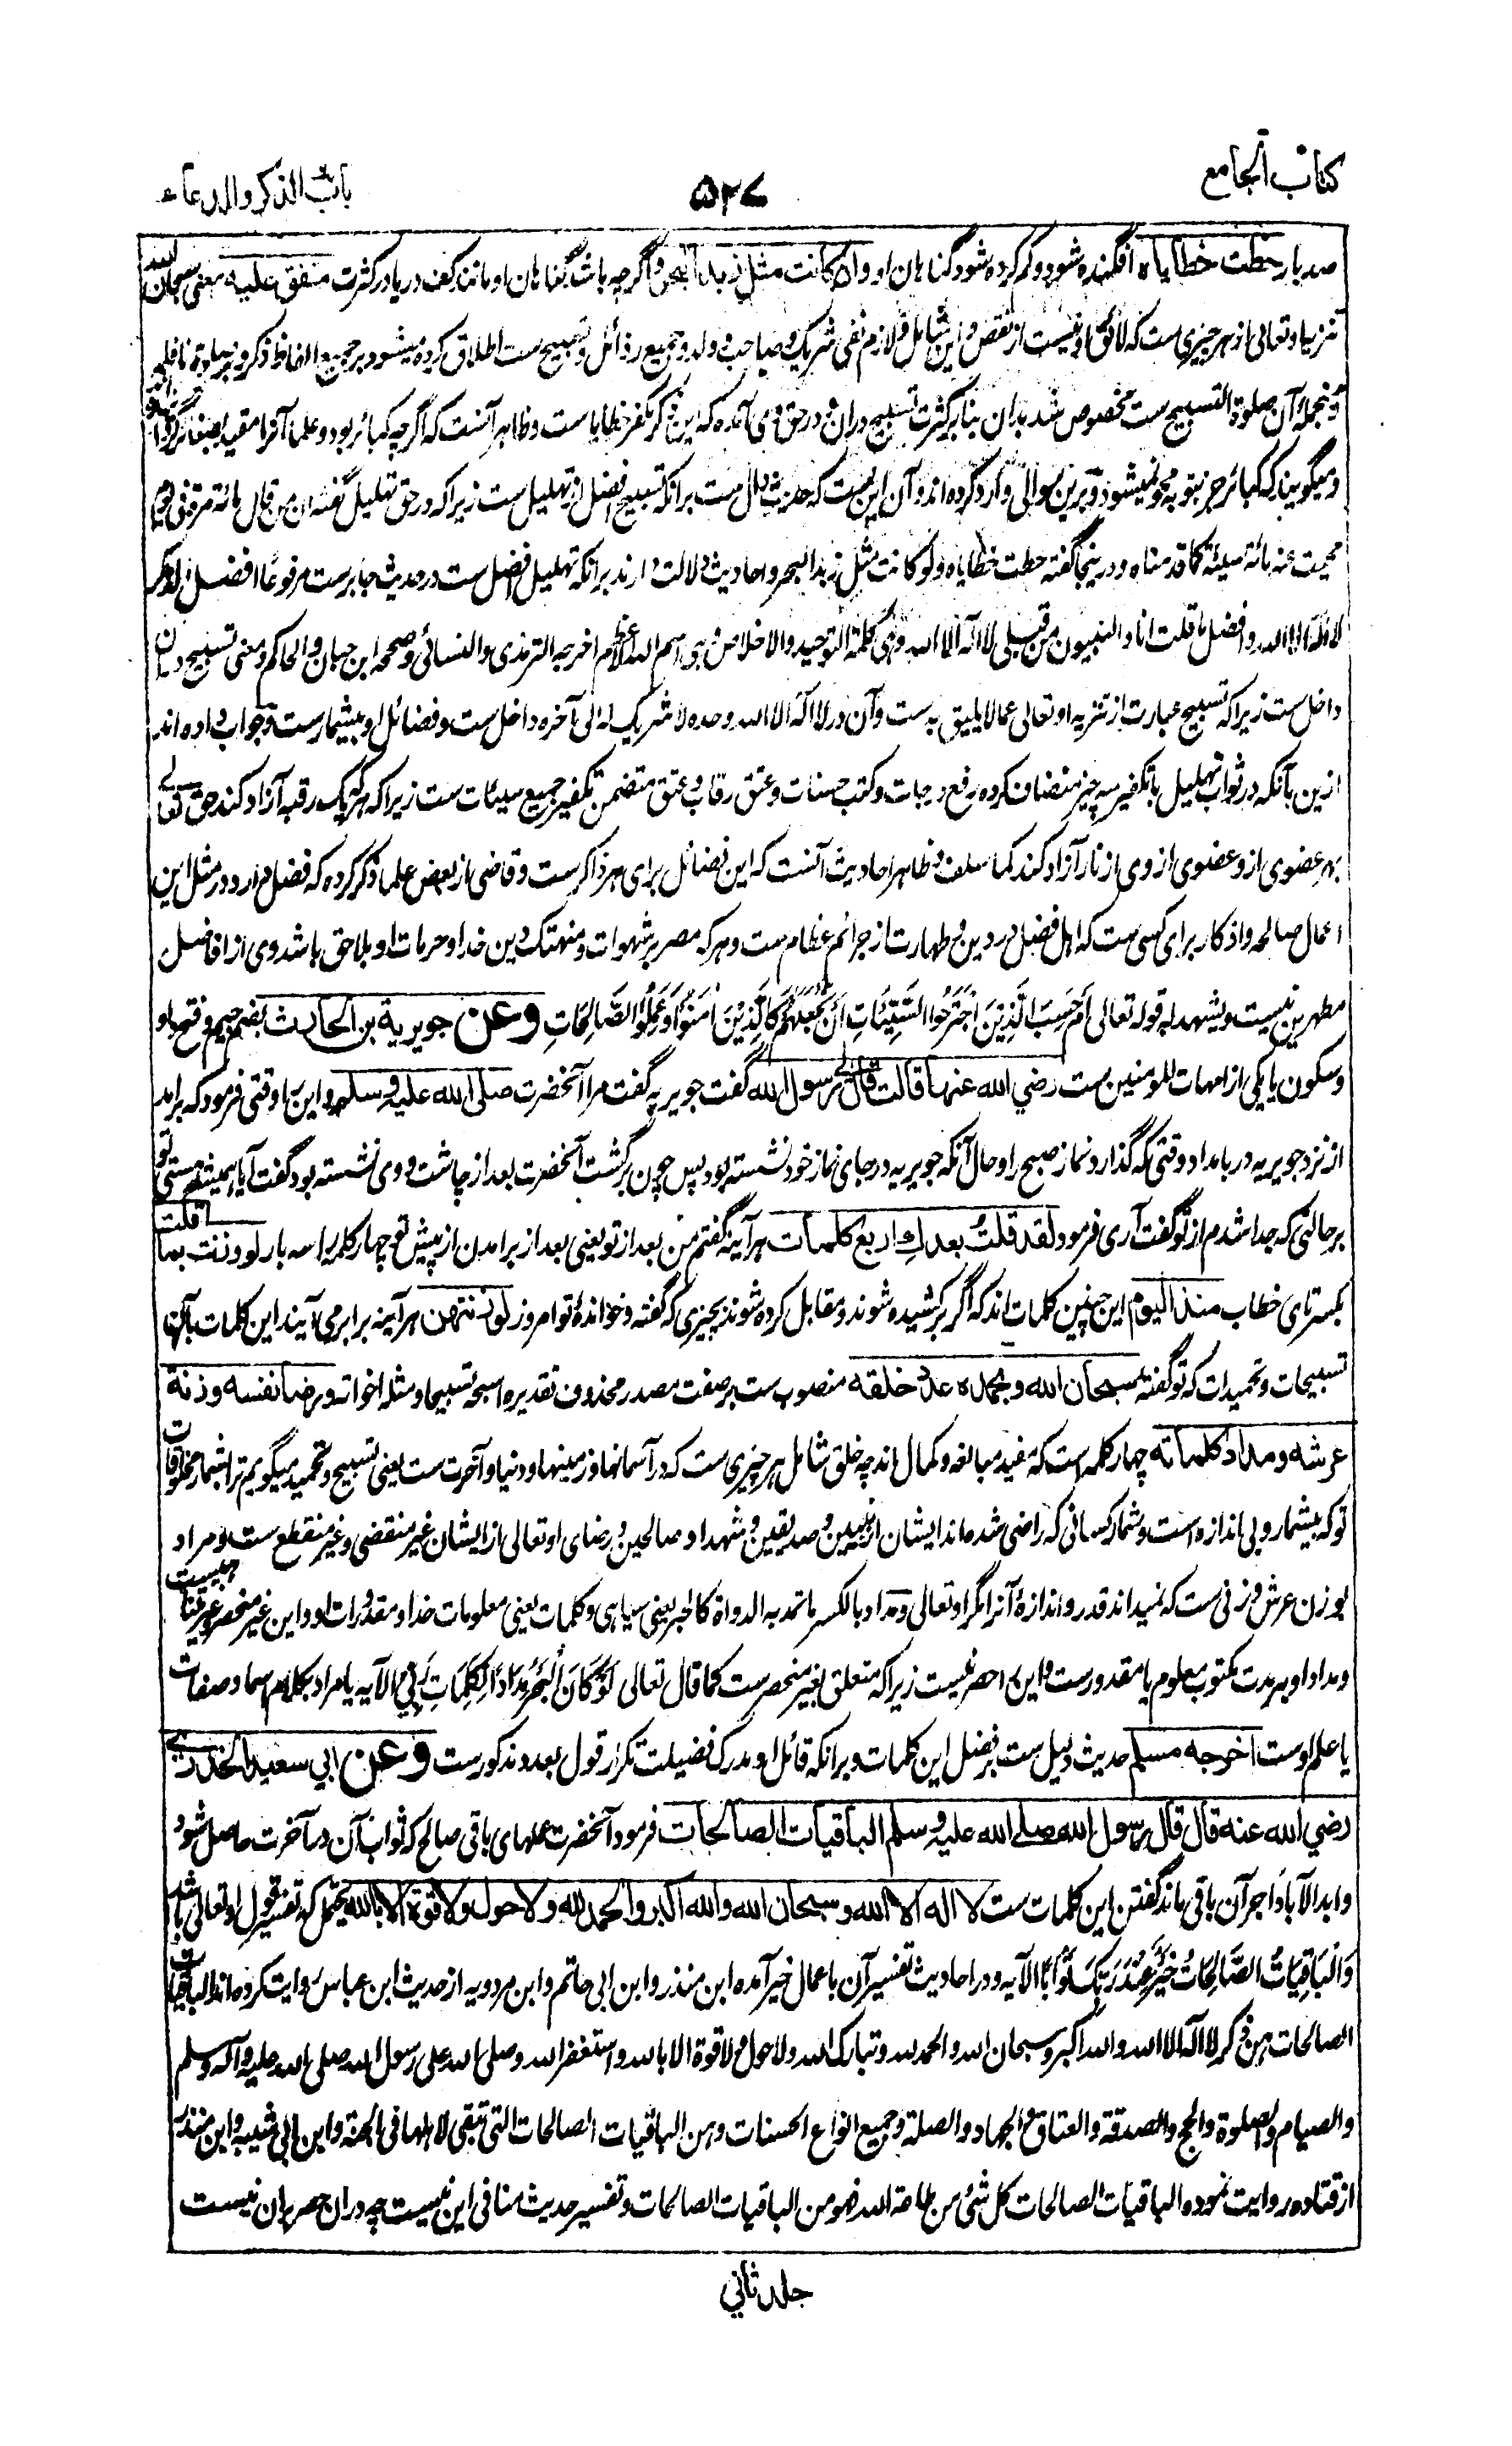 کتاب الجامع
۵۲۷
باب الذکر والدعاء
صد بار حطت خطایاه افگنده شود و کم کرده شود گناهان او وان کانت مثل زبد البحر و اگرچه باشد گناهان او مانند کف دریا در کثرت متفق علیه معنی سبحان الله
تنزیه او تعالی از هر چیزی ست که لائق او نیست از نقص و این شامل و لازم نفی شریک و صاحب و ولد و جمیع رذائل و تسبیح ست اطلاق کرده میشود بر جمیع الفاظ ذکر و بر صلوة نافله
و منجمله آن صلوة التسبیح ست مخصوص شد بدان بنا بر کثرت تسبیح دران و در حق وی آمده که این ذکر مکفر خطایا ست و ظاهر آنست که اگرچه کبائر بود و علما آنرا مقید بصغائر کرده اند
و میگویند که کبائر جز بتوبه محو نمیشود و برین سوالی وارد کرده اند و آن این ست که حدیث دال ست برانکه تسبیح افضل از تهلیل ست زیرا که در حق تهلیل گفته ان من قال مائة مرة فی یوم
محیت عنه مائة سیئة کما قدمناه و درینجا گفته حطت خطایاه ولو کانت مثل زبد البحر و احادیث دلالت دارند برانکه تهلیل افضل ست در حدیث جابر ست مرفوعا افضل الذکر
لا اله الا الله و افضل ما قلت انا والنبیون من قبلی لا اله الا الله وهی کلمة التوحید والاخلاص وهی اسم الله الاعظم اخرجه الترمذی والنسائی وصححه ابن حبان والحاکم و معنی تسبیح دران
داخل ست زیرا که تسبیح عبارت از تنزیه او تعالی عما لا یلیق به ست و آن در لا اله الا الله وحده لا شریک له الی آخره داخل ست و فضائل او بیشمار ست و جواب داده اند
ازین بآنکه در ثواب تهلیل با تکفیر سه چیز منضاف کرده رفع درجات و کتب حسنات و عتق رقاب و عتق متضمن تکفیر جمیع سیئات ست زیرا که هر که یک رقبه آزاد کند حق تعالی
بهر عضوی ازو عضوی از وی از نار آزاد کند کما سلف و ظاهر احادیث آنست که این فضائل برای هر ذاکر ست و قاضی از بعض علما ذکر کرده که فضل وارد در مثل این
اعمال صالحه و اذکار برای کسی ست که اهل فضل در دین و طهارت از جرائم عظام ست و هر که مصر بر شهوات و منهتک دین خدا و حرمات او بلا حق باشد وی از افاضل
مطهرین نیست و یشهد له قوله تعالی أَمْ حَسِبَ الَّذِینَ اجْتَرَحُوا السَّیِّئَاتِ أَنْ نَجْعَلَهُمْ کَالَّذِیْنَ اٰمَنُوْا وَعَمِلُوا الصَّالِحَاتِ وعن جویریة بن الحارث بضم جیم و فتح واو
و سکون یا یکی از امهات المومنین ست رضی الله عنها قالت قال لی رسول الله گفت جویریه گفت مرا آنحضرت صلی الله علیه وسلم و این را وقتی فرمود که برامد
از نزد جویریه در بامداد وقتی که گذارد نماز صبح را و حال آنکه جویریه در جای نماز خود نشسته بود پس چون برگشت آنحضرت بعد از چاشت و وی نشسته بود گفت آیا همیشه هستی تو
بر حالتی که جدا شدم از تو گفت آری فرمود لقد قلتُ بعدكِ اربع کلمات هر آینه گفتم من بعد از تو یعنی بعد از برامدن از پیش تو چهار کلمه را سه بار لو وزنت بما قلت
بکسر تای خطاب منذ الیوم این چنین کلمات اند که اگر برکشیده شوند و مقابل کرده شوند بچیزی که گفته و خوانده تو امروز لوزنتهن هر آینه برابر می آیند این کلمات بآن
تسبیحات و تحمیدات که تو گفته سبحان الله وبحمده عدد خلقه منصوب ست بر صفت مصدر محذوف تقدیره اسبحه تسبیحا و مثله اخواته ورضا نفسه وزنة
عرشه ومداد کلماته چهار کلمه است که مفید مبالغه و کمال اند چه خلق شامل هر چیزی ست که در آسمانها و زمینها و دنیا و آخرت ست یعنی تسبیح و تحمید میگویم ترا بشمار مخلوقات
تو که بیشمار و بی اندازه است و شمار کسانی که راضی شده ماند ایشان از نبیین و صدیقین و شهدا و صالحین و رضای او تعالی از ایشان غیر منقضی و غیر منقطع ست و مراد
بوزن عرش وزنی ست که نمیداند قدر و اندازه آنرا مگر او تعالی و مداد بالکسر ما تمد به الدواة کالحبر یعنی سیاهی و کلمات یعنی معلومات خدا و مقدورات او و این غیر منحصر و غیر متناهیست
و مداد او بر مدت مکتوب معلوم یا مقدور ست و این را حصر نیست زیرا که متعلق بغیر منحصر ست کما قال تعالی لَوْ کَانَ الْبَحْرُ مِدَادًا لِکَلِمَاتِ رَبِّی الآیه یا مراد بکلام اسما و صفات
یا علم اوست اخرجه مسلم حدیث دلیل ست بر فضل این کلمات و برانکه قائل او مدرک فضیلت تکرار قول بعدد مذکور ست وعن ابی سعید الخدری
رضی الله عنه قال قال رسول الله صلی الله علیه وسلم الباقیات الصالحات فرمود آنحضرت عملهای باقی صالح که ثواب آن در آخرت حاصل شود
و ابد الآباد اجر آن باقی ماند گفتن این کلمات ست لا اله الا الله وسبحان الله والله اکبر والحمد لله ولا حول ولا قوة الا بالله یحتمل که تفسیر قول او تعالی باشد
وَالْبَاقِیَاتُ الصَّالِحَاتُ خَیْرٌ عِنْدَ رَبِّکَ ثَوَابًا الآیه و در احادیث تفسیر آن باعمال خیر آمده ابن منذر و ابن ابی حاتم و ابن مردویه از حدیث ابن عباس روایت کرده اند الباقیات
الصالحات هن ذکر لا اله الا الله والله اکبر وسبحان الله والحمد لله وتبارک الله ولا حول ولا قوة الا بالله واستغفر الله وصلی الله علی رسول الله صلی الله علیه وآله وسلم
والصیام والصلوة والحج والصدقة والعتاق والجهاد والصلة وجمیع انواع الحسنات وهن الباقیات الصالحات التی تبقی لاهلها فی الجنة و ابن ابی شیبه و ابن منذر
از قتاده روایت نموده الباقیات الصالحات کل شئ من طاعة الله فهو من الباقیات الصالحات و تفسیر حدیث منافی این نیست چه دران حصر بران نیست
جلد ثانی